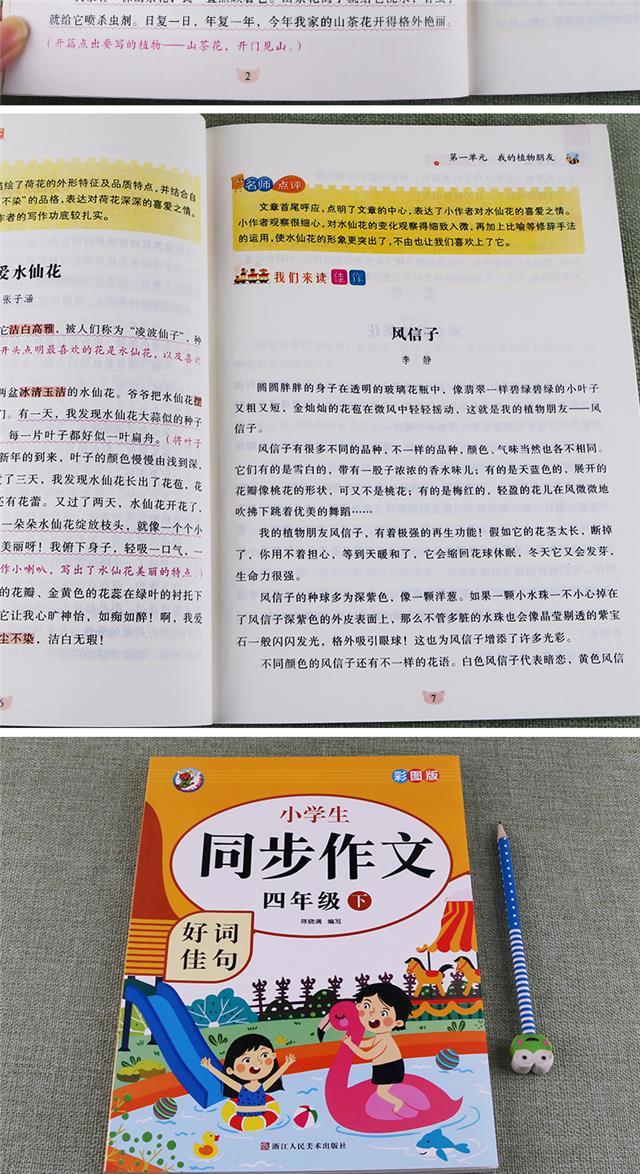 就给它喷杀虫剂。日复一日，年复一年，今年我家的山茶花开得格外艳丽。
(开篇点出要写的植物——山茶花，开门见山。)
2
描绘了荷花的外形特征及品质特点，并结合自
不染”的品格，表达对荷花深深的喜爱之情。
作者的写作功底较扎实。
爱水仙花
张子涵
它洁白高雅，被人们称为“凌波仙子”，种
开头点明最喜欢的花是水仙花，以及喜欢
两盆冰清玉洁的水仙花。爷爷把水仙花摆
们。有一天，我发现水仙花大蒜似的种子
每一片叶子都好似一叶扁舟。(将叶子
新年的到来，叶子的颜色慢慢由浅到深，
过了三天，我发现水仙花长出了花苞，花
还有花蕾。又过了两天，水仙花开花了，
一朵朵水仙花绽放枝头，就像一个个小
美丽呀！我俯下身子，轻吸一口气，一
作小喇叭，写出了水仙花美丽的特点。)
的花瓣、金黄色的花蕊在绿叶的衬托下
它让我心旷神怡，如痴如醉！啊，我爱
尘不染，洁白无瑕！
6
第一单元 我的植物朋友
名师点评
文章首尾呼应，点明了文章的中心，表达了小作者对水仙花的喜爱之情。
小作者观察很细心，对水仙花的变化观察得细致入微，再加上比喻等修辞手法
的运用，使水仙花的形象更突出了，不由也让我们喜欢上了它。
我们来读佳作
风信子
李 静
圆圆胖胖的身子在透明的玻璃花瓶中，像翡翠一样碧绿碧绿的小叶子
又粗又短，金灿灿的花苞在微风中轻轻摇动，这就是我的植物朋友——风
信子。
风信子有很多不同的品种，不一样的品种，颜色、气味当然也各不相同。
它们有的是雪白的，带有一股子浓浓的香水味儿；有的是天蓝色的，展开的
花瓣像桃花的形状，可又不是桃花；有的是梅红的，轻盈的花儿在风微微地
吹拂下跳着优美的舞蹈……
我的植物朋友风信子，有着极强的再生功能！假如它的花茎太长，断掉
了，你用不着担心，等到天暖和了，它会缩回花球休眠，冬天它又会发芽，
生命力很强。
风信子的种球多为深紫色，像一颗洋葱。如果一颗小水珠一不小心掉在
了风信子深紫色的外皮表面上，那么不管多脏的水珠也会像晶莹剔透的紫宝
石一般闪闪发光，格外吸引眼球！这也为风信子增添了许多光彩。
不同颜色的风信子还有不一样的花语。白色风信子代表暗恋，黄色风信
7
彩图版
小学生
同步作文
四年级下
陈晓满 编写
好词
佳句
浙江人民美术出版社